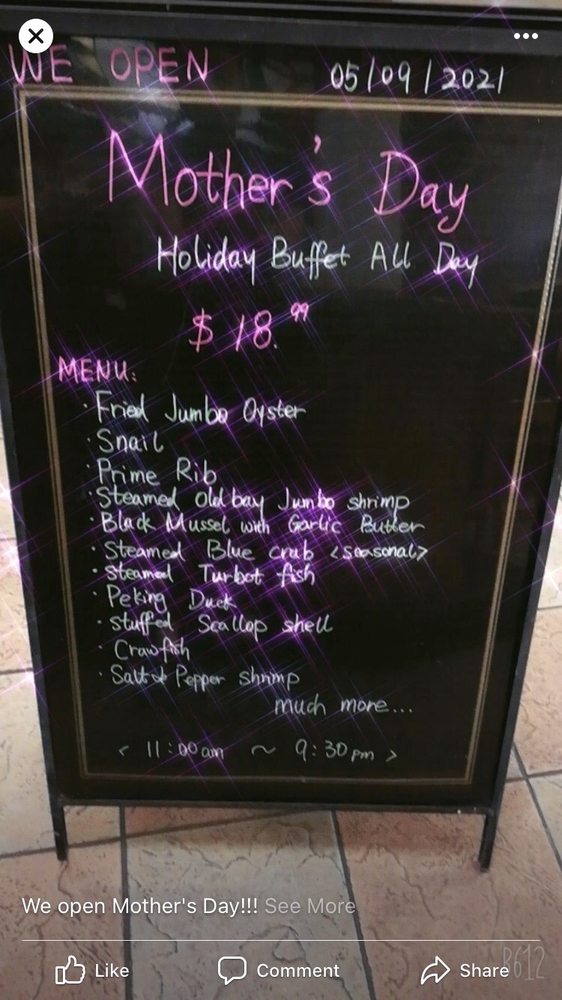 WE OPEN 05/09/2021
Mother's Day
Holiday Buffet All Day
$18.99
MENU:
· Fried Jumbo Oyster
· Snail
· Prime Rib
· Steamed Old bay Jumbo shrimp
· Black Mussel with Garlic Butter
· Steamed Blue crab <seasonal>
· Steamed Turbot fish
· Peking Duck
· stuffed Scallop shell
· Crawfish
· Salt & Pepper shrimp
much more...
< 11:00am ~ 9:30pm >
We open Mother's Day!!! See More
Like Comment Share
B612